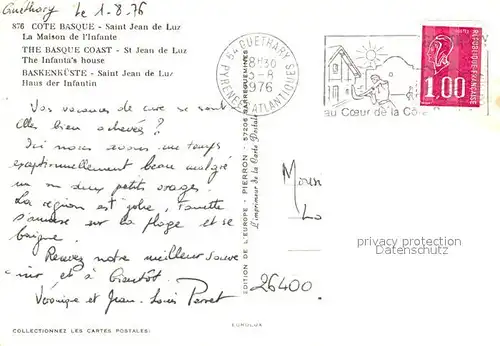 Guethary le 1-8-76
876 COTE BASQUE - Saint Jean de Luz
La Maison de l'Infante
THE BASQUE COAST - St Jean de Luz
The Infanta's house
BASKENKÜSTE - Saint Jean de Luz
Haus der Infantin
Vos vacances de cure se sont
elles bien achevées?
Ici nous avons un temps
exceptionnellement beau malgré
un ou deux petits orages.
La région est jolie,
s'amuse sur la plage et se
baigne.
Recevez notre meilleur souve
nir et à bientôt.
Véronique et Jean-Louis Perret
COLLECTIONNEZ LES CARTES POSTALES!
EDITION DE L'EUROPE - PIERRON - 57206 SARREGUEMINES
L'imprimeur de la Carte Postale
EUROLUX
64 GUETHARY
18H30
1976
PYRENEES ATLANTIQUES
au Cœur de la Côte
1,00
REPUBLIQUE FRANÇAISE
26400
privacy protection
postal address